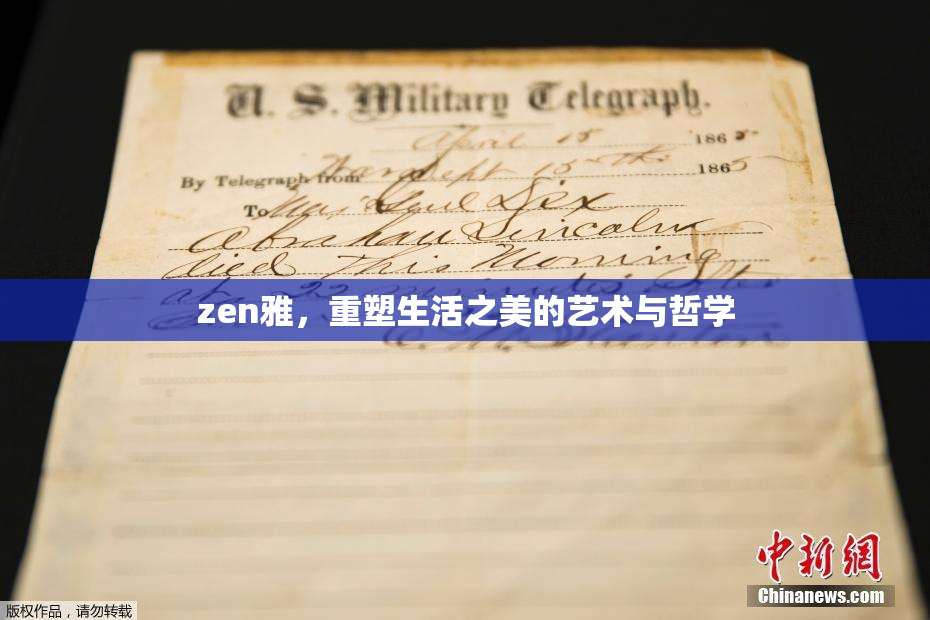 U. S. Military Telegraph.
April 15 1865
By Telegraph from War Dept 15th 1865
To Maj Genl Dix
Abraham Lincoln
died This Morning
at 22 minutes after
zen雅，重塑生活之美的艺术与哲学
E. M. Stanton
中新网
Chinanews.com
版权作品，请勿转载